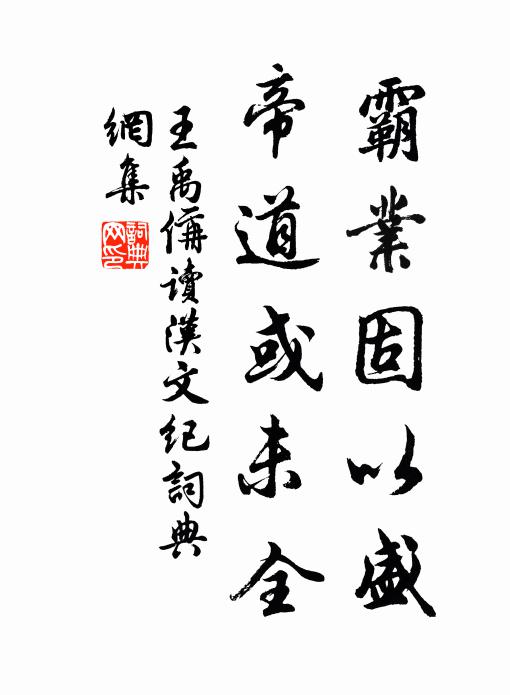 霸業固以盛
帝道或未全
王禹偁讀漢文紀詞典
網集
詞典網印